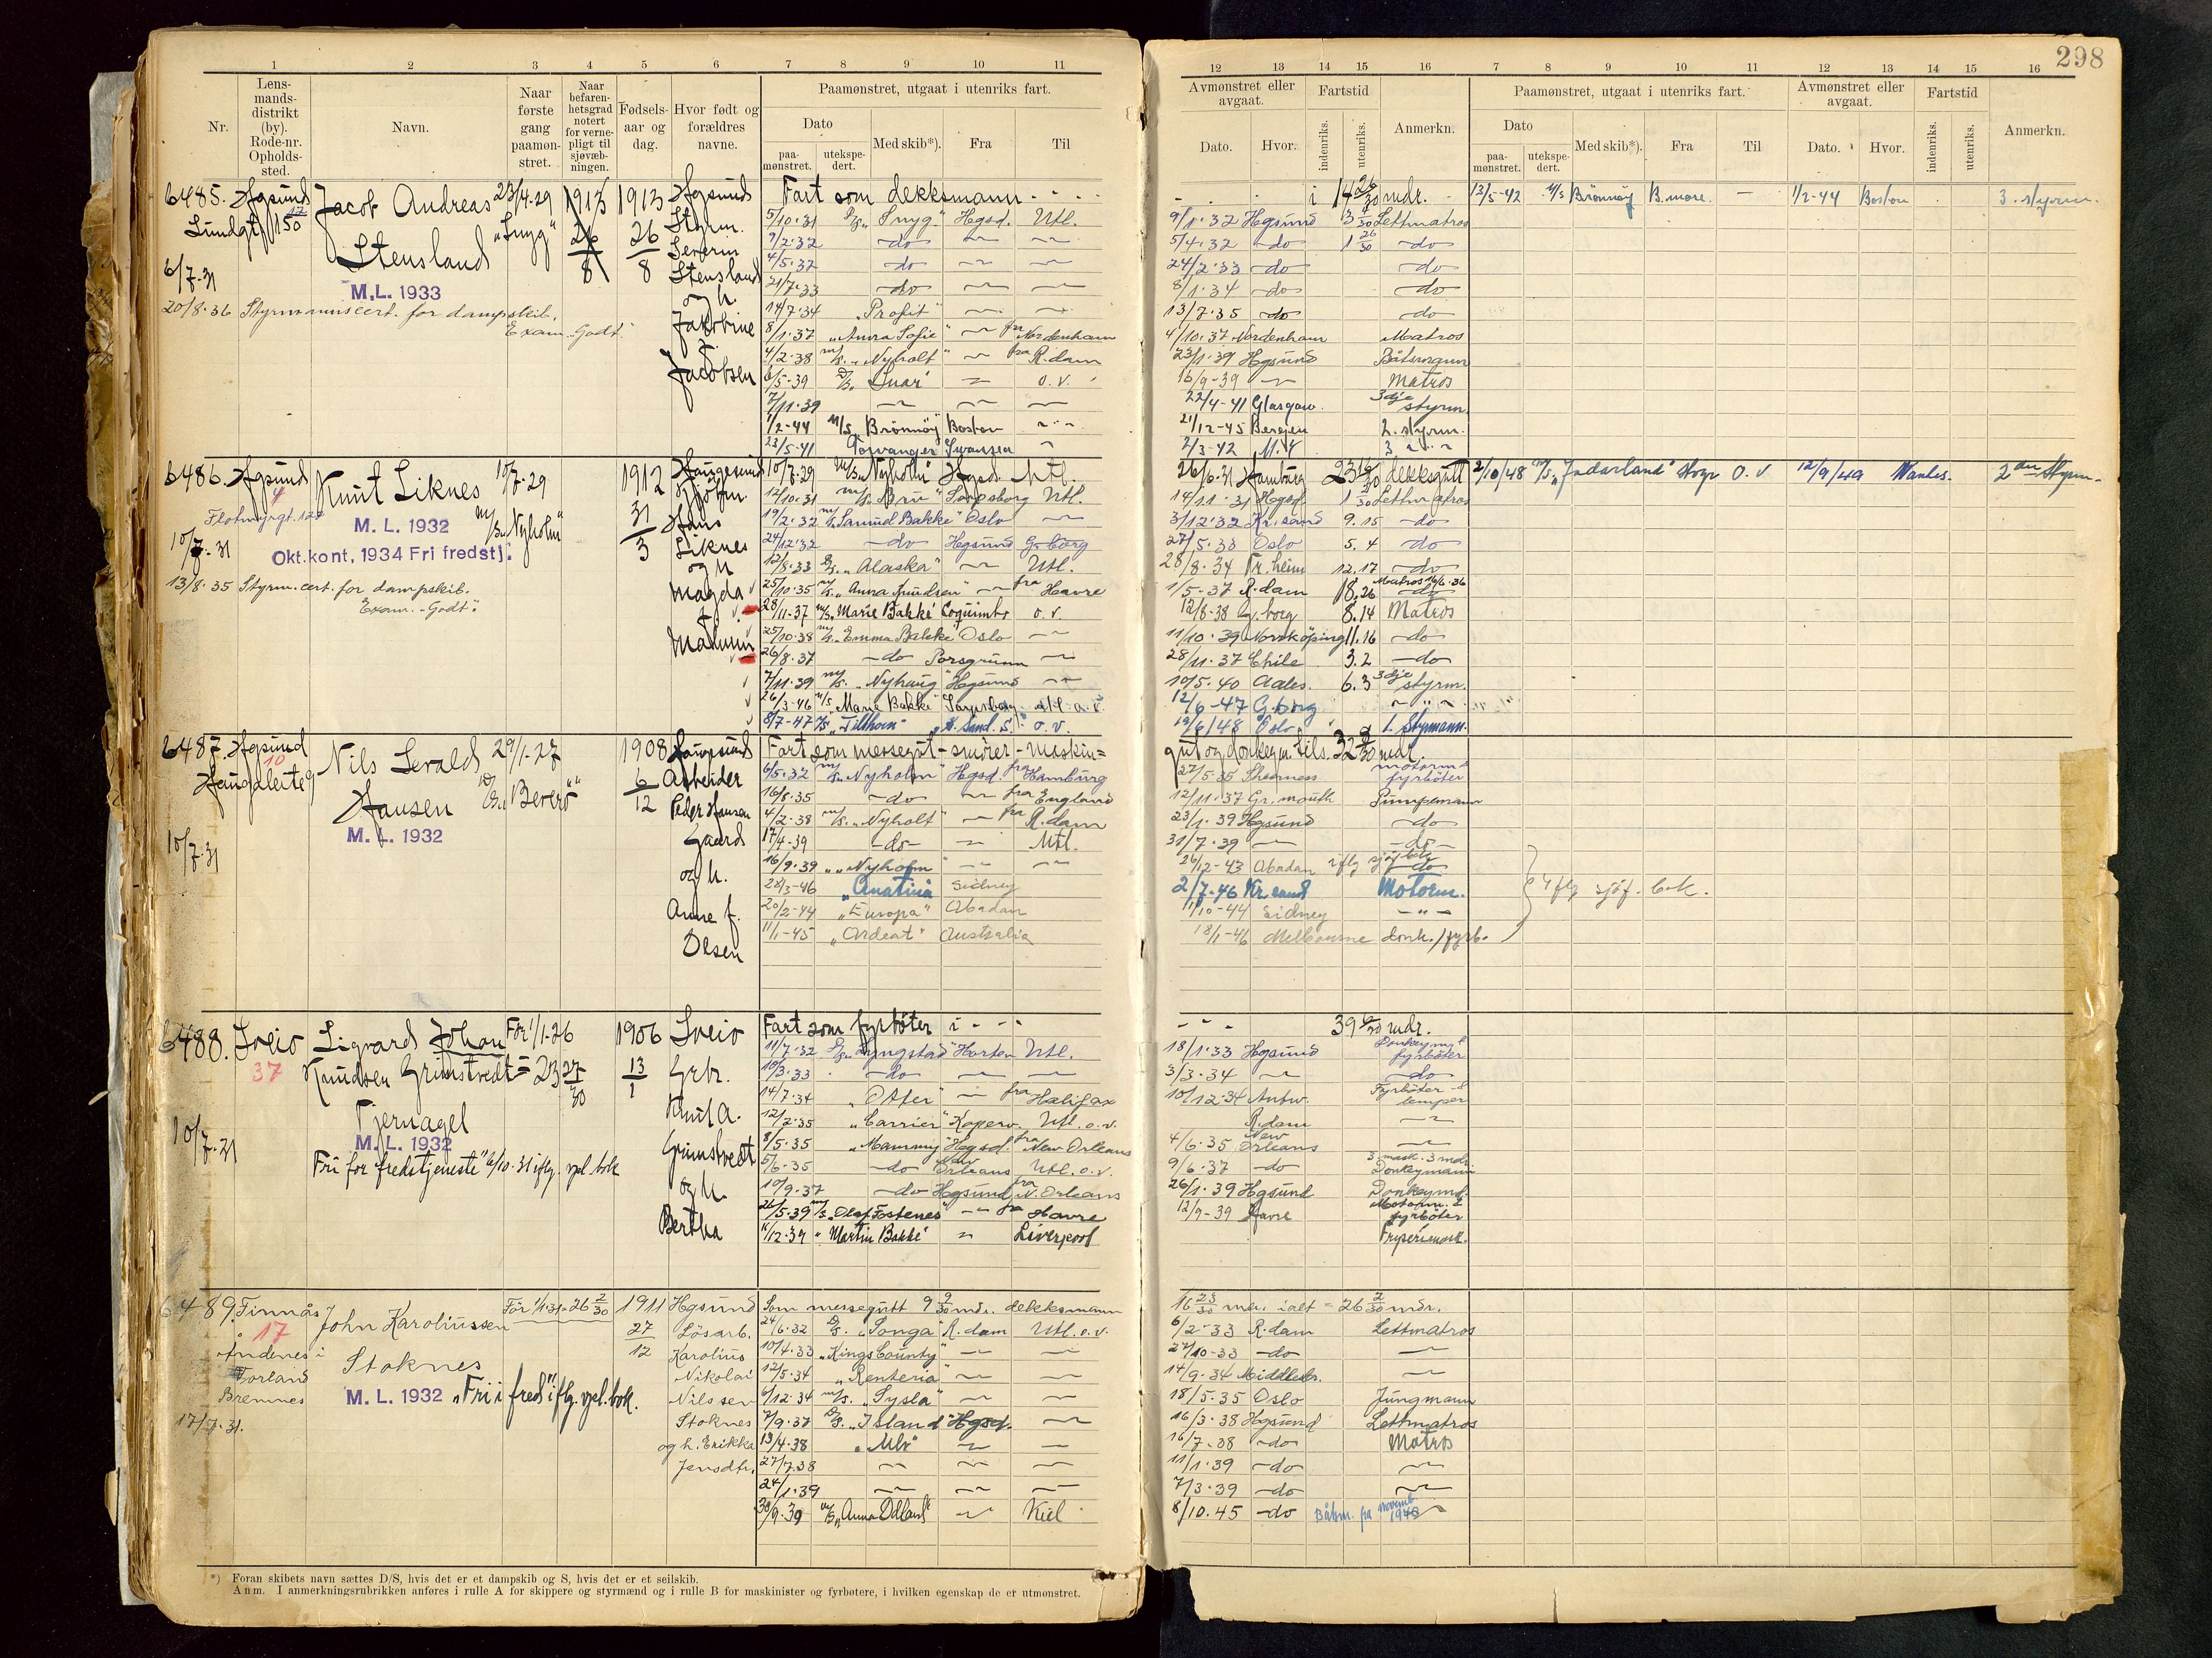 298
1 2 3 4 5 6 7 8 9 10 11
12 13 14 15 16 7 8 9 10 11 12 13 14 15 16
Nr.
Lens-
mands-
distrikt
(by).
Rode-nr.
Opholds-
sted.
Navn.
Naar
første
gang
paamøn-
stret.
Naar
befaren-
hetsgrad
notert
for verne-
pligt til
sjøvæb-
ningen.
Fødsels-
aar og
dag.
Hvor født og
forældres
navne.
Paamønstret, utgaat i utenriks fart.
Dato
paa-
mønstret.
utekspe-
dert.
Med skib*).
Fra
Til
Avmønstret eller
avgaat.
Dato.
Hvor.
Fartstid
indenriks.
utenriks.
Anmerkn.
Paamønstret, utgaat i utenriks fart.
Dato
paa-
mønstret.
utekspe-
dert.
Med skib*).
Fra
Til
Avmønstret eller
avgaat.
Dato.
Hvor.
Fartstid
indenriks.
utenriks.
Anmerkn.
6485. Hgsund
Lundgt. 150
Jacob Andreas
Stensland
23/4.29
"Snyg"
1913
26
8
1913
26
8
Hgsund
Styrm.
Severin
Stensland
og h.
Jakobine
f.
Jacobsen
6/7-31
M.L. 1933
20/8.36 Styrmannscert. for dampskib.
Exam. Godt
Fart som dekksmann - - - i 14 26/30 mdr.
5/10.31 D/S "Snyg" Hgsd. Utl. 9/1.32 Hgsund Lettmatros
9/2.32 -do- 5/4.32 -do- 1 26/30 -do-
4/5.32 -do- 24/2.33 -do- -do-
21/7.33 -do- 8/1.34 -do- -do-
14/7.34 "Profit" 13/7.35 -do- -do-
8/1.37 "Anna Sofie" fra Nordenham 4/10.37 Nordenham Matros
4/2.38 M/S. "Nyholt" fra R.dam 23/1.39 Hgsund Båtsmann
6/5-39 D/S "Snar" o.v. 16/9-39 Matros
7/11.39 22/4-41 Glasgow. 3dje styrm.
1/2-44 M/S "Brønnøy" Boston 21/12-45 Bergen 2. styrm.
23/5-41 Torvanger Swansea 2/3-42 N.Y 3.
13/5-42 M/S Brønnøy B.more. - 1/2-44 Boston 3. styrm.
6486. Hgsund
4
Flotmyrgt. 127
Knut Liknes
10/7.29
M/S "Nyholm"
1912
31
3
Haugesund
Hans
Liknes
og h.
Magda
f.
10/7.31
M. L. 1932
Okt.kont, 1934 Fri fredstj.
13/8.35 Styrm.cert. for dampskib.
Exam. "Godt".
10/7.29 M/S "Nyholm" Hgsd. Utl. 26/6.31 Hamburg dekksgutt
12/10.31 M/S "Bru" Sarpsborg Utl. 14/11.31 Hgsd. Lettmatros
19/2.32 M/S "Samuel Bakke" Oslo 3/12.32 Kr.sand 9.15 -do-
24/12.32 -do- Hgsund G.borg 27/5.33 Oslo 5.4 -do-
12/8.33 D/S. "Alaska" Utl. 28/8.34 Tr.heim 12.17 -do-
25/10.35 M/S. "Anna Knudsen" fra Havre 1/5-37 R.dam 18.26 Matros 16/6.36 -do-
28/11-37 M/S. "Marie Bakke" Coquimbo o.v. 12/8-38 G.borg 8.14 Matros
25/10.38 M/S. "Emma Bakke" Oslo 11/10.39 Norrköping 11.16 -do-
26/8.37 -do- Porsgrunn 28/11.37 Chile 3.2 -do-
7/11.39 M/S. "Nyhaug" Hgsund 10/5.40 Aales. 6.3 3dje styrm.
26/3-46 M/S. "Marie Bakke" Sarpsborg 12/6-47 G.borg
8/7-47 M/S. "Tillthorn" o.v. 19/6/48 Oslo 1. Styrmann.
2/10/48 M/S. "Jadarland" O.V 12/9/49 2den Styrm.
6487. Hgsund
10
Nils Sevald
Hansen
29/1.27
"Beverø"
1908
6
12
Haugesund
Arbeider
Peder Hansen
Gaard
og h.
Anne f.
Olsen
10/7.31
M. L. 1932
Fart som messegut - smörer - maskin=
gut og donkeym. tils. 32 mdr.
6/5.32 M/S "Nyholm" Hgsd. fra Hamburg 27/5.35 Sheerness motorm. & fyrböter
16/8.35 -do- fra England 12/11.37 Gr.mouth Pumpemann
4/2.38 M/S. "Nyholt" fra R.dam 23/1.39 Hgsund -do-
17/4.39 -do- Utl. 31/7.39 -do-
16/9.39 "Nyholm" 26/12-43 Abadan iflg sjøfbok -do-
28/3-46 "Anatina" Sidney 2/7-46 Kr.sand Motorm.
20/2-44 "Europa" Abadan 11/10-44 Sidney
11/1-45 "Ordeat" Australia 18/1-46 Melbourne donk./fyrb.
iflg sjøf. bok.
6488. Sveio
37
Sigvard Johan
Knudsen Grimstvedt
Tjernagel
För 1/1.26
= 23 27/30
1906
13
1
Sveio
Grbr.
Knut A.
Grimstvedt
og h.
Bertha
10/7.31
M. L. 1932
Fri for fredstjeneste" 6/10.31 iflg. vpl. bok
Fart som fyrböter i - - - 39 mdr.
11/7.32 D/S. "Ringstad" Horten Utl. 18/1.33 Hgsund Donkeym. & fyrböter
10/3.33 -do- 3/3.34 -do-
14/7.34 "Otter" fra Halifax 10/12.34 Antw. Fyrböter & lemper
12/2.35 "Carrier" Koperv. Utl. o.v. R.dam
8/5.35 "Mammy" Hgsd. fra New Orleans 4/6.35 New Orleans
5/6.35 -do- New Orleans Utl. o.v. 9/6.37 -do- 3. mask. 3 mdr. Donkeymann
10/9.37 -do- Hgsund fra N. Orleans 26/1.39 Hgsund Donkeym.
26/5.39 M/S. "Olaf Fostenes" fra Havre 12/9-39 Havre Motorm. & fyrböter
11/12.39 "Martin Bakke" Liverpool
6489. Finnås
17
Andenes i
Forland
Bremnes
John Karoliussen
Stoknes
För 1/1.31 = 26 2/30
1911
27
12
Hgsund
Lösarb.
Karolius
Nikolai
Nilssen
Stoknes
og h. Erikka
Jensdtr.
17/7.31.
M. L. 1932 "Fri i fred" iflg. vpl. bok.
Som messegutt 9 9/30 mdr. dekksmann
16 23/30 mdr. ialt = 26 2/30 mdr.
24/6.32 D/S. "Songa" R.dam Utl. o.v. 6/2-33 R.dam Lettmatros
10/4.33 "Kings County" 27/10-33 -do-
12/5.34 "Renteria" 14/9.34 Middlesbr.
6/12.34 M/S. "Sysla" 18/5.35 Oslo Jungmann
7/9.37 D/S. "Island" Hgsd. 16/3.38 Hgsund Lettmatros
13/4.38 "Ulv" 16/7.38 -do- Matros
27/7.38 11/1.39 -do-
24/1.39 7/3.39 -do-
30/9.39 M/S "Anna Odland" Kiel 8/10.45 -do- Båtm. fra novemb.
*) Foran skibets navn sættes D/S, hvis det er et dampskib og S, hvis det er et seilskib.
Anm. I anmerkningsrubrikken anføres i rulle A for skippere og styrmænd og i rulle B for maskinister og fyrbøtere, i hvilken egenskap de er utmønstret.